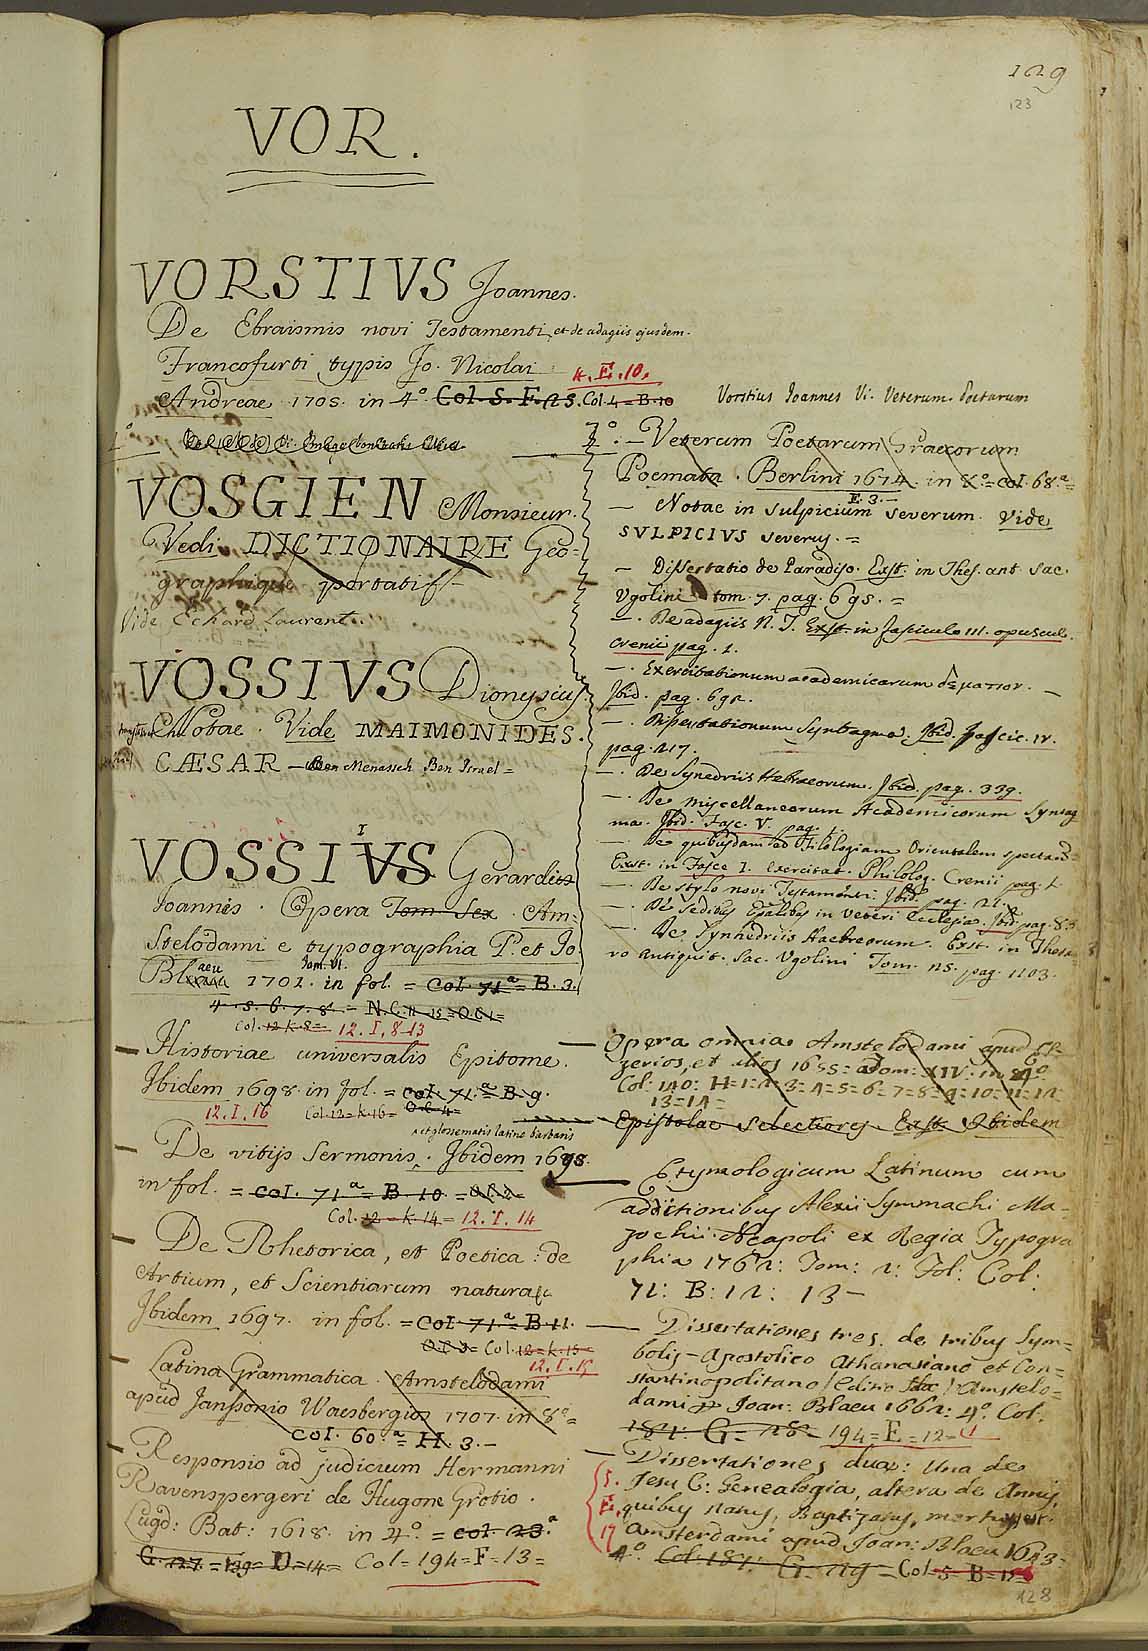 129
123
VOR.
VORSTIVS Joannes.
De Ebraismis novi Testamenti, et de adagiis ejusdem.
Francofurti typis Jo. Nicolai
4. E. 10.
Andreae 1705. in 4º. Col. S. F. 25. Col. 4 = B. 10
VOSGIEN Monsieur.
Vedi DICTIONAIRE Geo-
graphique portatif
Vide Echard Laurent.
VOSSIVS Dionysius
Notae. Vide MAIMONIDES.
CÆSAR — Ben Menasseh Ben Israel =
VOSSIVS Gerardus
I
Joannis. Opera Tom. Sex. Am-
stelodami e typographia P. et Jo.
Blaeu 1701. in fol. = Col. 71ª = B. 3.
Tom. VI.
4. 5. 6. 7. 8. =
Col. 12 k. 8 = 12. I. 8-13
Historiae universalis Epitome.
Ibidem 1698. in fol. = Col. 71.ª = B. 9.
12. I. 16 Col. 12 = k. 16 = O. C. 4 =
et glossematis latino barbaris
De vitijs Sermonis. Ibidem 1695.
in fol. = Col. 71ª = B. 10 =
Col. 12 = k. 14 = 12. I. 14
De Rhetorica, et Poetica: de
Artium, et Scientiarum natura &
Ibidem 1697. in fol. = Col. 71.ª = B. 11.
O. C. 3 = Col. 12 = k. 15 =
12. I. 15
Latina Grammatica. Amstelodami
apud Janssonio Waesbergios 1707. in 8º =
Col. 60.ª = H. 3. —
Responsio ad judicium Hermanni
Ravenspergeri de Hugone Grotio.
Lugd: Bat: 1618. in 4º. = Col. 23.ª
G. 27 = 139 = D = 14 = Col = 194 = F = 13 =
Vorstius Joannes Vi. Veterum. Poetarum
— Veterum Poetarum Graecorum
Poemata. Berlini 1674. in 8.º = Col. 68.ª =
E. 3. —
— Notae in Sulpicium Severum. Vide
SVLPICIVS Severus. =
— Dissertatio de Paradiso. Exst. in Thes. ant. Sac.
Vgolini tom. 7. pag. 695. =
—. De adagiis N. T. Exst. in fasciculo III. opuscul.
Crenii pag. 1.
—. Exercitationum academicarum
Ibid. pag. 692.
—. Dissertationum Syntagma. Ibid. Fascic. IV.
pag. 217.
—. De Synedriis Hebraeorum. Ibid. pag. 339.
—. De Miscellaneorum Academicorum Syntag
ma. Ibid. Fasc. V. pag. 1.
—. De quibusdam ad Filologiam Orientalem spectan-
Exst. in Fasce I. exercitat. Philolog. Crenii pag. 1.
—. De stylo novi Testamenti. Ibid. pag. 22.
—. De Sedibus Epalibus in Veteri Ecclesia. Ibid. pag. 83
—. De Synhedriis Haebreorum. Exst. in Thesa
ro Antiquit. Sac. Vgolini Tom. 25. pag. 1103.
Opera omnia Amstelodami apud El-
zerios, et alios 1655 = Tom: XIV. in 4º.
Col: 140: H = 1 = 2 = 3 = 4 = 5 = 6 = 7 = 8 = 9 = 10 = 11 = 12 =
13 = 14 =
Epistolae Selectiores Exst. Ibidem
Etymologicum Latinum cum
additionibus Alexii Symmachi Ma-
zochii. Neapoli ex Regia Typogra
phia 1762: Tom: 2: Fol: Col:
71: B: 12: 13 —
Dissertationes tres. de tribus Sym-
bolis — Apostolico Athanasiano et Con-
stantinopolitano / Editio 2da / Amstelo-
dami Joan: Blaeu 1662: 4º. Col:
181: G = 28 = 194 = E = 12 =
Dissertationes duae: Una de
Jesu C: Genealogia, altera de Annis,
quibus natus, Baptizatus, mortuus est.
Amsterdami apud Joan: Blaeu 1643 =
5. E. 17
4º. Col: 181: G = 29 = Col = 5 B = 15
128